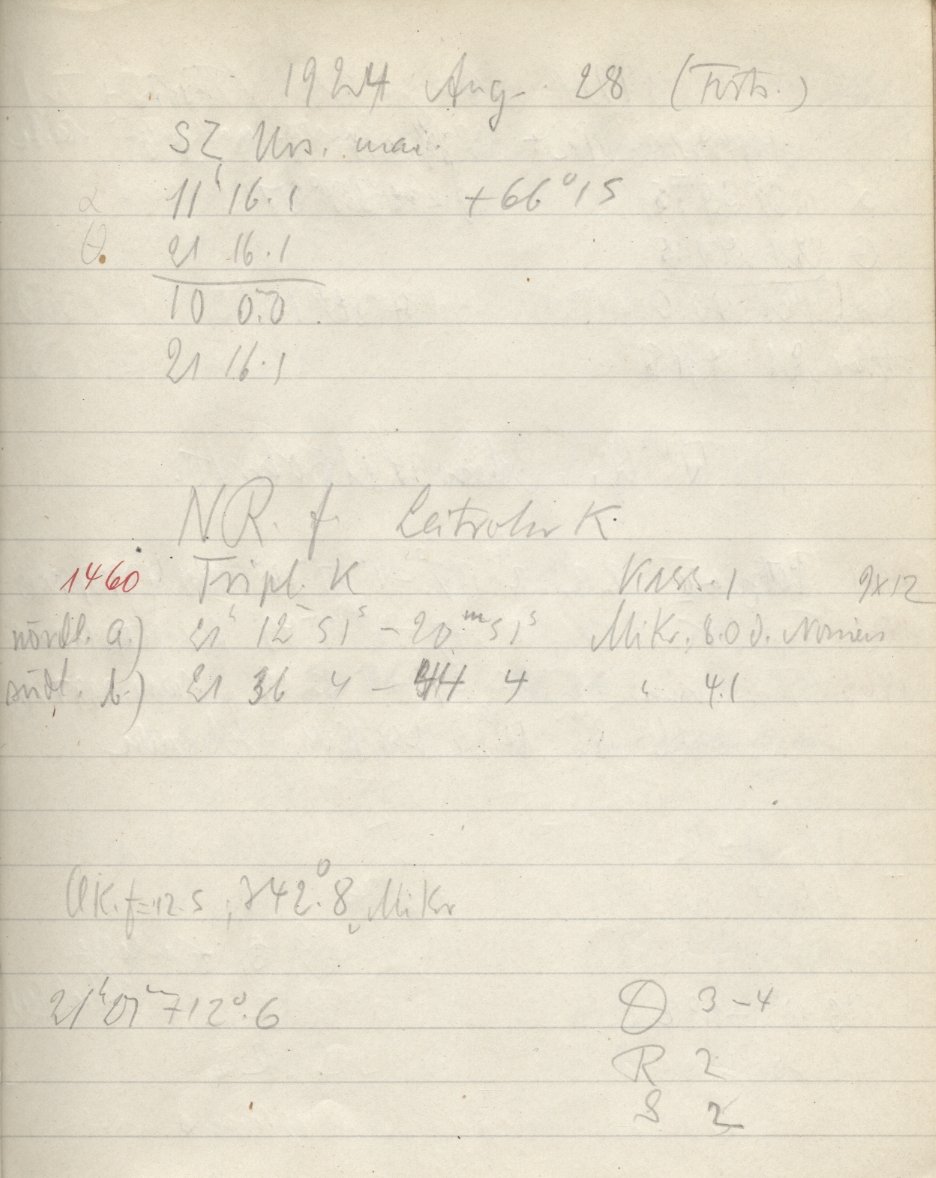 1924 Aug. 28 (Forts.)
SZ Urs. mai.
α 11ʰ 16.1 +66° 15
θ. 21 16.1
10 0.0
21 16.1
N.R. f. Leitrohr K.
1460 Tripl. K Kass. 1 9x12
nördl. a.) 21ʰ 12ᵐ 51ˢ – 20ᵐ 51ˢ Mikr. 8.0 d.
südl. b.) 21 36 4 – 44 4 " 4.1
f=12.5; 342°.8, Mikr
21ʰ 07ᵐ +12°.6
3–4
R 2
S 2